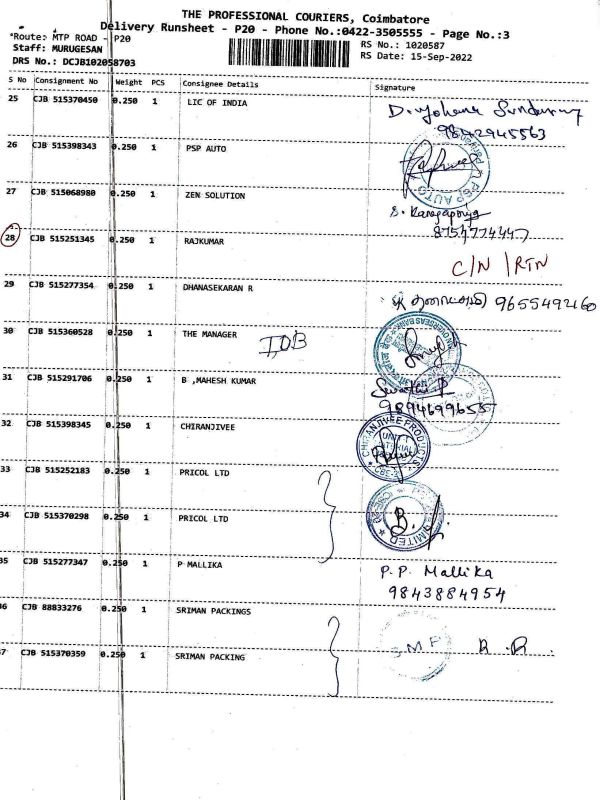 THE PROFESSIONAL COURIERS, Coimbatore
Delivery Runsheet - P20 - Phone No.:0422-3505555 - Page No.:3
Route: MTP ROAD - P20
RS No.: 1020587
Staff: MURUGESAN
RS Date: 15-Sep-2022
DRS No.: DCJB102058703
S No Consignment No Weight PCS Consignee Details Signature
25 CJB 515370450 0.250 1 LIC OF INDIA
9842945563
26 CJB 515398343 0.250 1 PSP AUTO
PSP AUTO
27 CJB 515068980 0.250 1 ZEN SOLUTION
8754774447
28 CJB 515251345 0.250 1 RAJKUMAR
C/N /RTN
29 CJB 515277354 0.250 1 DHANASEKARAN R 9655492160
30 CJB 515360528 0.250 1 THE MANAGER IOB
31 CJB 515291706 0.250 1 B ,MAHESH KUMAR Swathi. P
9894699655
32 CJB 515398345 0.250 1 CHIRANJIVEE
CHIRANJIVEE PRODUCTS
33 CJB 515252183 0.250 1 PRICOL LTD
34 CJB 515370298 0.250 1 PRICOL LTD
35 CJB 515277347 0.250 1 P MALLIKA P.P. Mallika
9843884954
36 CJB 88833276 0.250 1 SRIMAN PACKINGS
S M P
37 CJB 515370359 0.250 1 SRIMAN PACKING